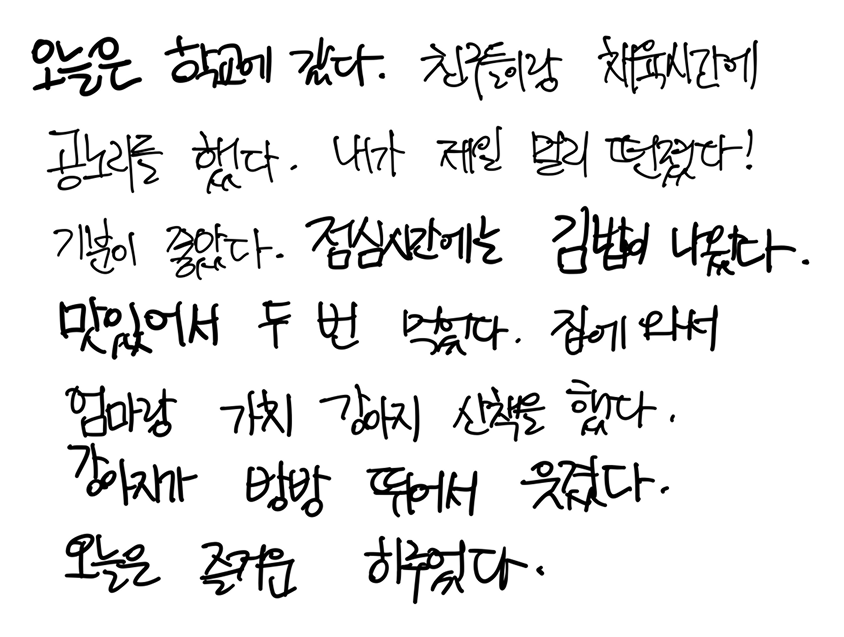 오늘은 학교에 갔다. 친구들이랑 체육시간에
공노리를 했다. 내가 제일 멀리 떤졌다!
기분이 좋았다. 점심시간에는 김밥이 나왔다.
맛있어서 두 번 먹었다. 집에 와서
엄마랑 가치 강아지 산책을 했다.
강아지가 방방 뛰어서 웃겼다.
오늘은 즐거운 하루였다.